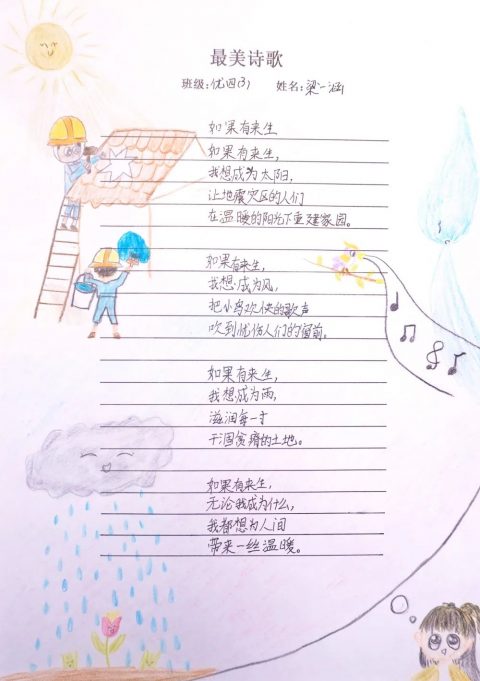 最美诗歌
班级:优四(3) 姓名:梁一涵
如果有来生
如果有来生,
我想成为太阳,
让地震灾区的人们
在温暖的阳光下重建家园。
如果有来生,
我想成为风,
把小鸟欢快的歌声
吹到忧伤人们的窗前。
如果有来生,
我想成为雨,
滋润每一寸
干涸贫瘠的土地。
如果有来生,
无论我成为什么,
我都想为人间
带来一丝温暖。